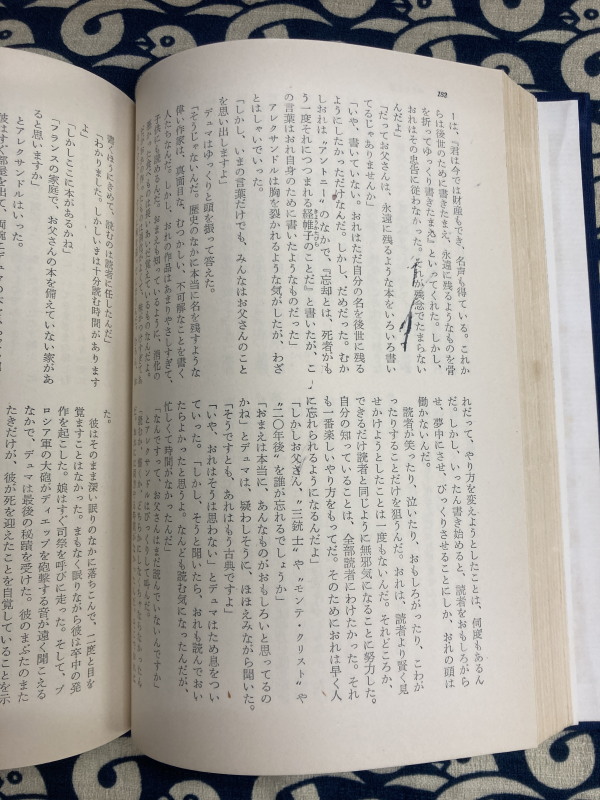 ーは、『君は今では財産もでき、名声も得ている。これか
らは後世のために書きたまえ、永遠に残るようなものを骨
を折ってゆっくり書きたまえ』といってくれた。しかし、
おれはその忠告に従わなかった。それが残念でたまらない
んだよ」
「だってお父さんは、永遠に残るような本をいろいろ書い
てるじゃありませんか」
「いや、書いていない。おれはただ自分の名を後世に残る
ようにしたかっただけなんだ。しかし、だめだった。むか
しおれは〝アントニー〟のなかで、『忘却とは、死者がも
う一度それにつつまれる経帷子のことだ』と書いたが、こ
の言葉はおれ自身のために書いたようなものだった」
アレクサンドルは胸を裂かれるような気がしたが、わざ
とはしゃいでいった。
「しかし、いまの言葉だけでも、みんなはお父さんのこと
を思い出しますよ」
デュマはゆっくりと頭を振って答えた。
「そうじゃないんだ。歴史のなかに本当に名を残すような
偉い作家は、真面目な、むつかしい、不可解なことを書く
人たちなんだ。しかし、おれの作品はあまりやさしすぎて、
れだって、やり方を変えようとしたことは、何度もあるん
だ。しかし、いったん書き始めると、読者をおもしろがら
せ、夢中にさせ、びっくりさせることにしか、おれの頭は
働かないんだ。
読者が笑ったり、泣いたり、おもしろがったり、こわが
ったりすることだけを狙うんだ。おれは、読者より賢く見
せかけようとしたことは一度もないんだ。それどころか、
できるだけ読者と同じように無邪気になることに努力した。
自分の知っていることは、全部読者にわけたかった。それ
も一番楽しいやり方をもってだ。そのためにおれは早く人
に忘れられるようになるんだよ」
「しかしお父さん、〝三銃士〟や〝モンテ・クリスト〟や
〝二〇年後〟を誰が忘れるでしょうか」
「おまえは本当に、あんなものがおもしろいと思ってるの
かね」とデュマは、疑わしそうに、ほほえみながら聞いた。
「そうですとも、あれはもう古典ですよ」
「いや、おれはそうは思わない」とデュマはため息をつい
ていった。「しかし、そうと聞いたら、おれも読んでおい
たらよかったと思うよ。なんども読む気になったんだが、
忙しくて時間がなかったんだ」
「なんですって、お父さんはまだ読んでいないんですか」
とアレクサンドルはびっくりして叫んだ。
書くほうにきめて、読むのは読者に任したんだ」
「わかりました。しかしいきは十分読む時間があります
よ」
「しかしここに本があるかね」
「フランスの家庭で、お父さんの本を備えていない家があ
ると思いますか」
とアレクサンドルはいった。
た。
彼はそのまま深い眠りのなかに落ちこんで、二度と目を
覚ますことはなかった。まもなく眠りながら彼は卒中の発
作を起こした。娘はすぐ司祭を呼びに走った。そして、プ
ロシア軍の大砲がディエップを砲撃する音が遠く聞こえる
なかで、デュマは最後の秘蹟を受けた。彼のまぶたのまた
たきだけが、彼が死を迎えたことを自覚していることを示